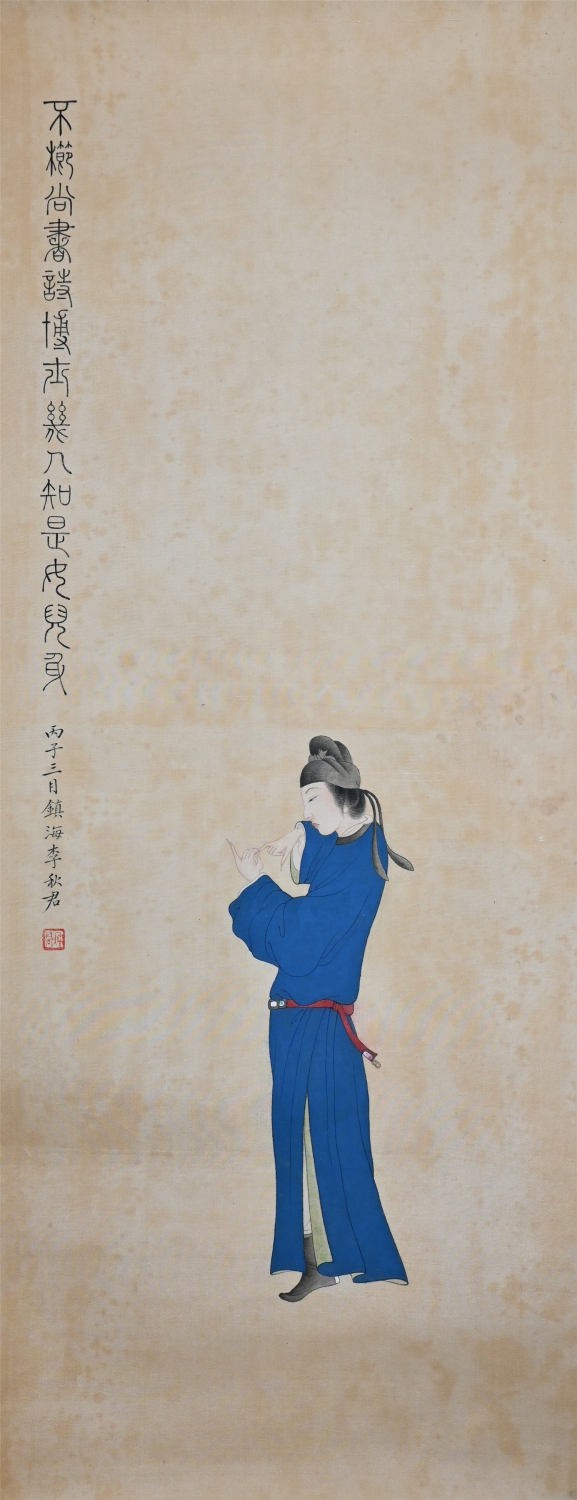 不櫛尚書詩博士幾人知是女兒身
丙子三月鎮海李秋君